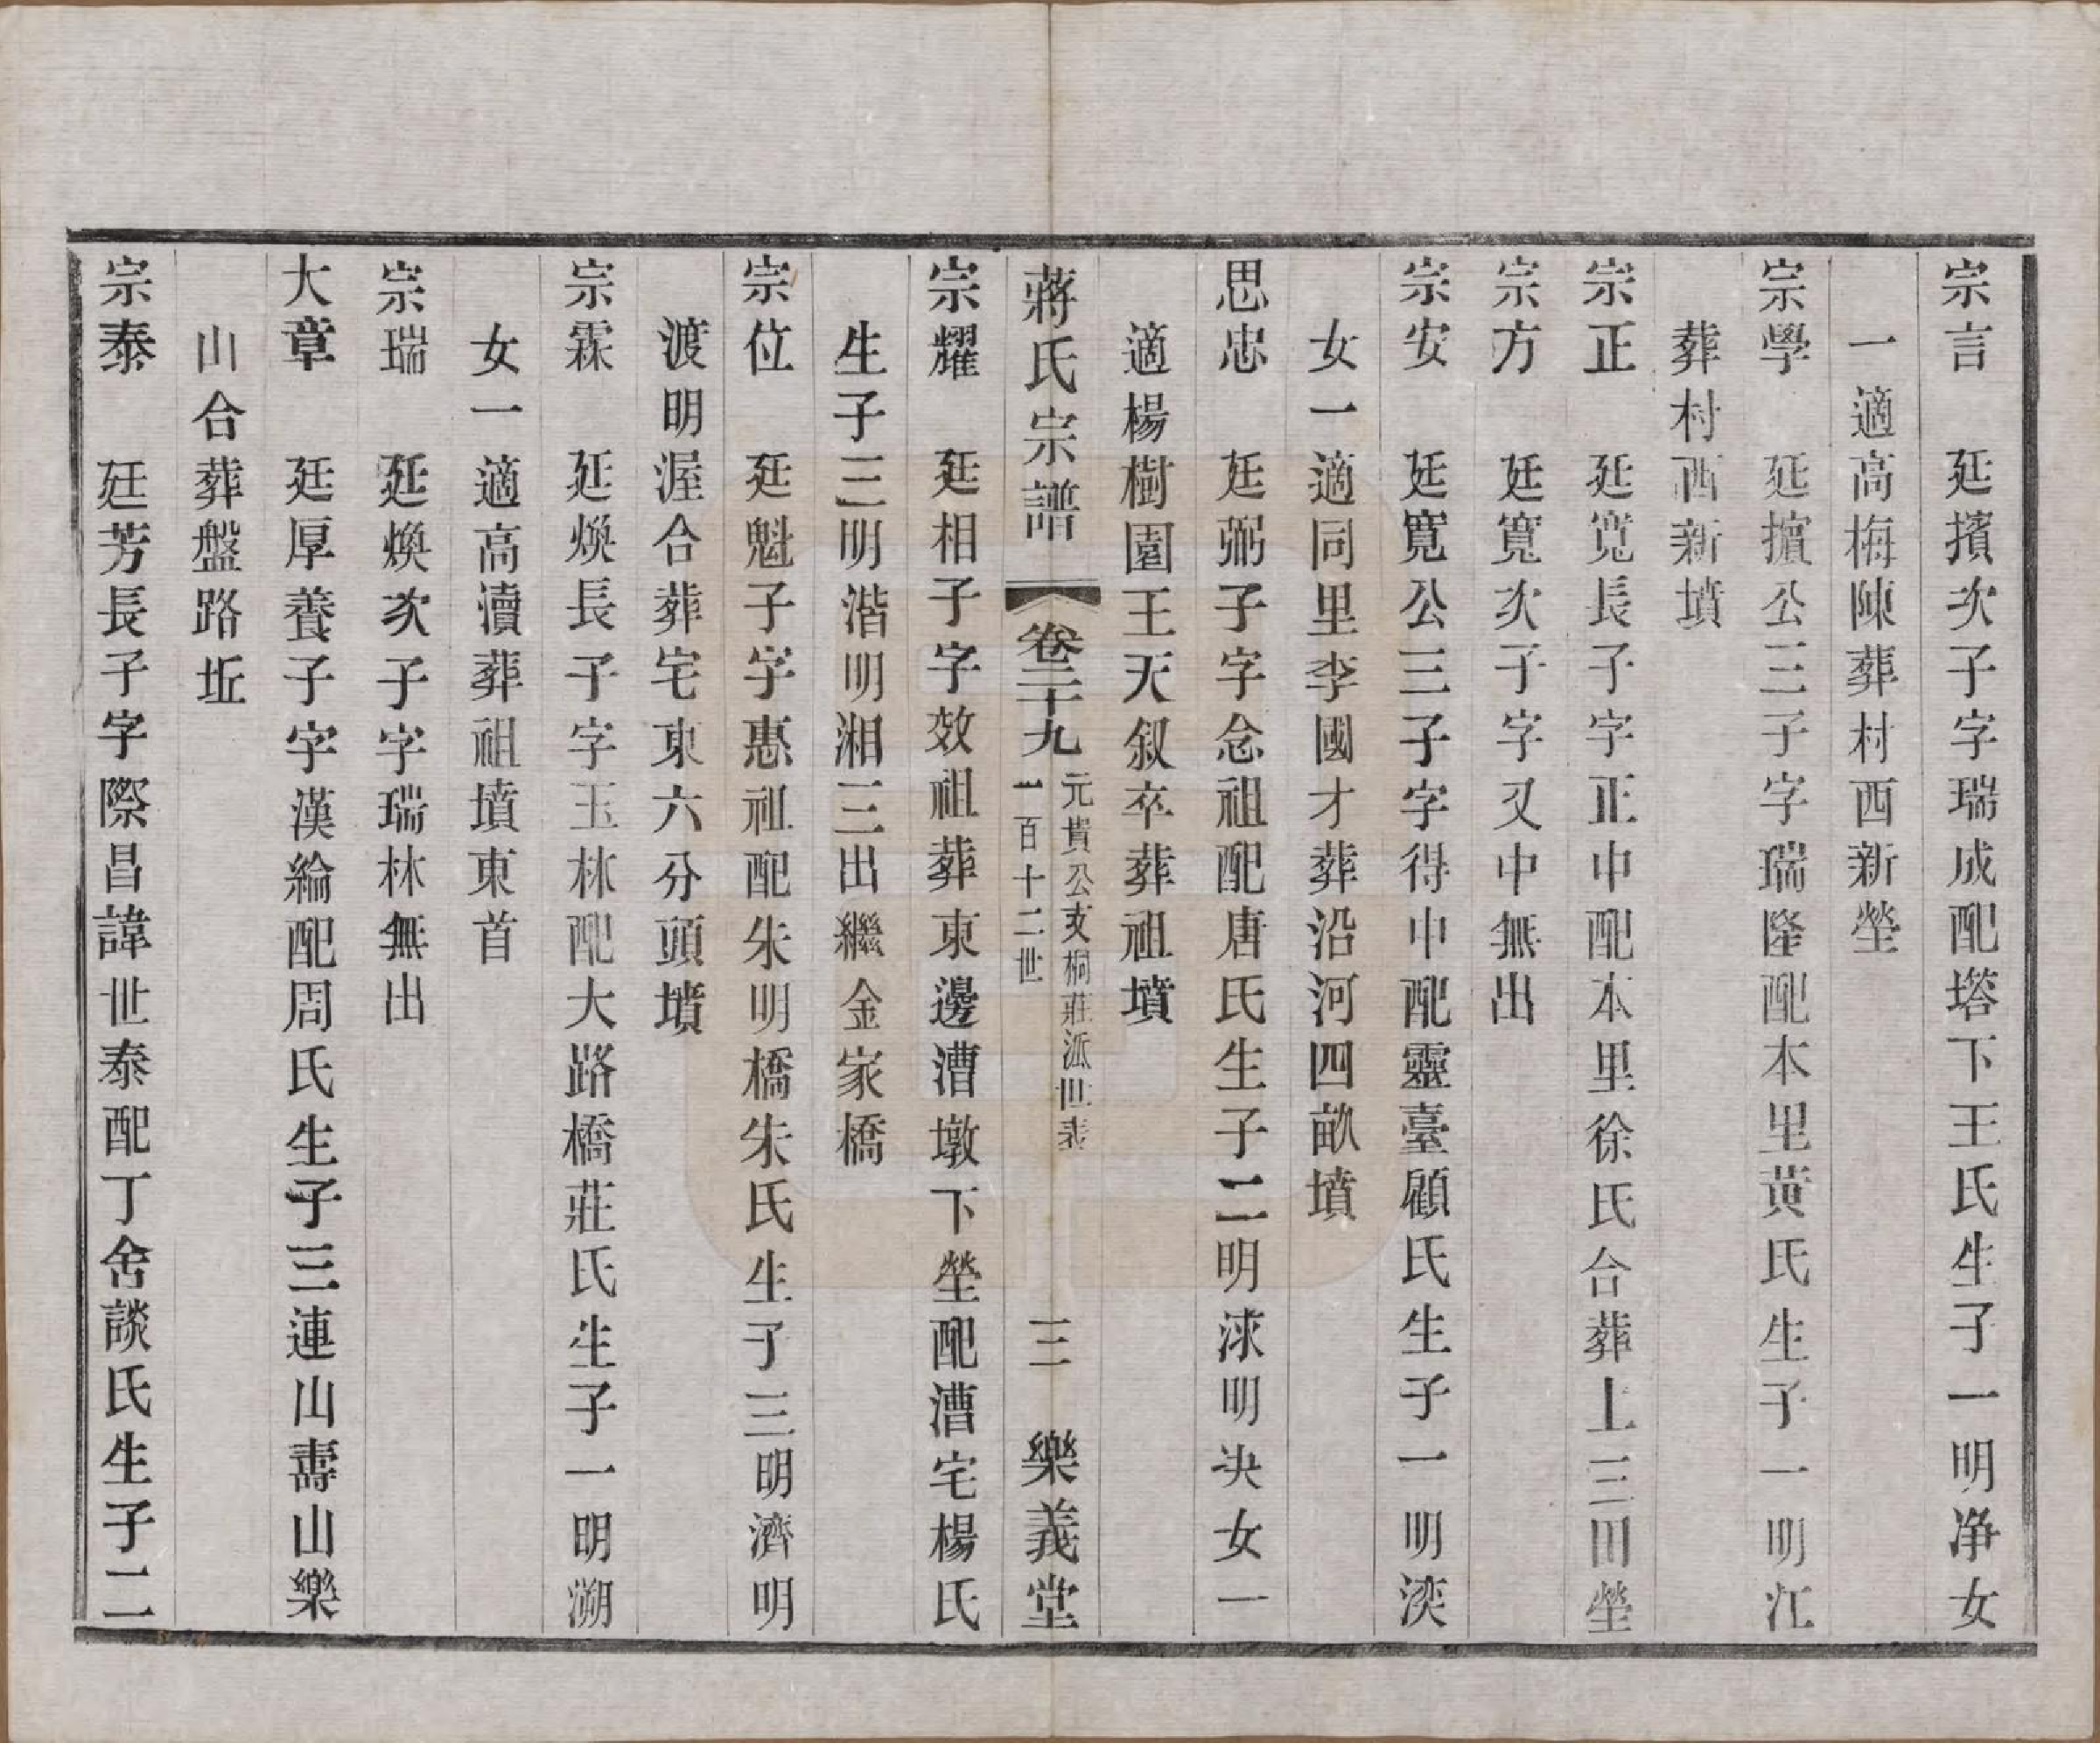 宗言　廷擯次子字瑞成配塔下王氏生子一明净女
一適高梅陳葬村西新塋
宗學　廷擯公三子字瑞隆配本里黄氏生子一明江
葬村西新墳
宗正　廷寬長子字正中配本里徐氏合葬上三田塋
宗方　廷寬次子字又中無出
宗安　廷寬公三子字得中配靈臺顧氏生子一明浹
女一適同里李國才葬沿河四畝墳
思忠　廷弼子字念祖配唐氏生子二明浗明决女一
適楊樹園王天叙卒葬祖墳
蔣氏宗譜　卷二十九　元貴公支桐莊派世表　一百十二世　三　樂義堂
宗耀　廷相子字效祖葬東邊漕墩下塋配漕宅楊氏
生子三明湝明湘三出繼金家橋
宗位　廷魁子字惠祖配朱明橋朱氏生子三明濟明
渡明渥合葬宅東六分頭墳
宗霖　廷煥長子字玉林配大路橋莊氏生子一明溯
女一適高瀆葬祖墳東首
宗瑞　廷煥次子字瑞林無出
大章　廷厚養子字漢綸配周氏生子三連山壽山樂
山合葬盤路坵
宗泰　廷芳長子字際昌諱世泰配丁舍談氏生子二